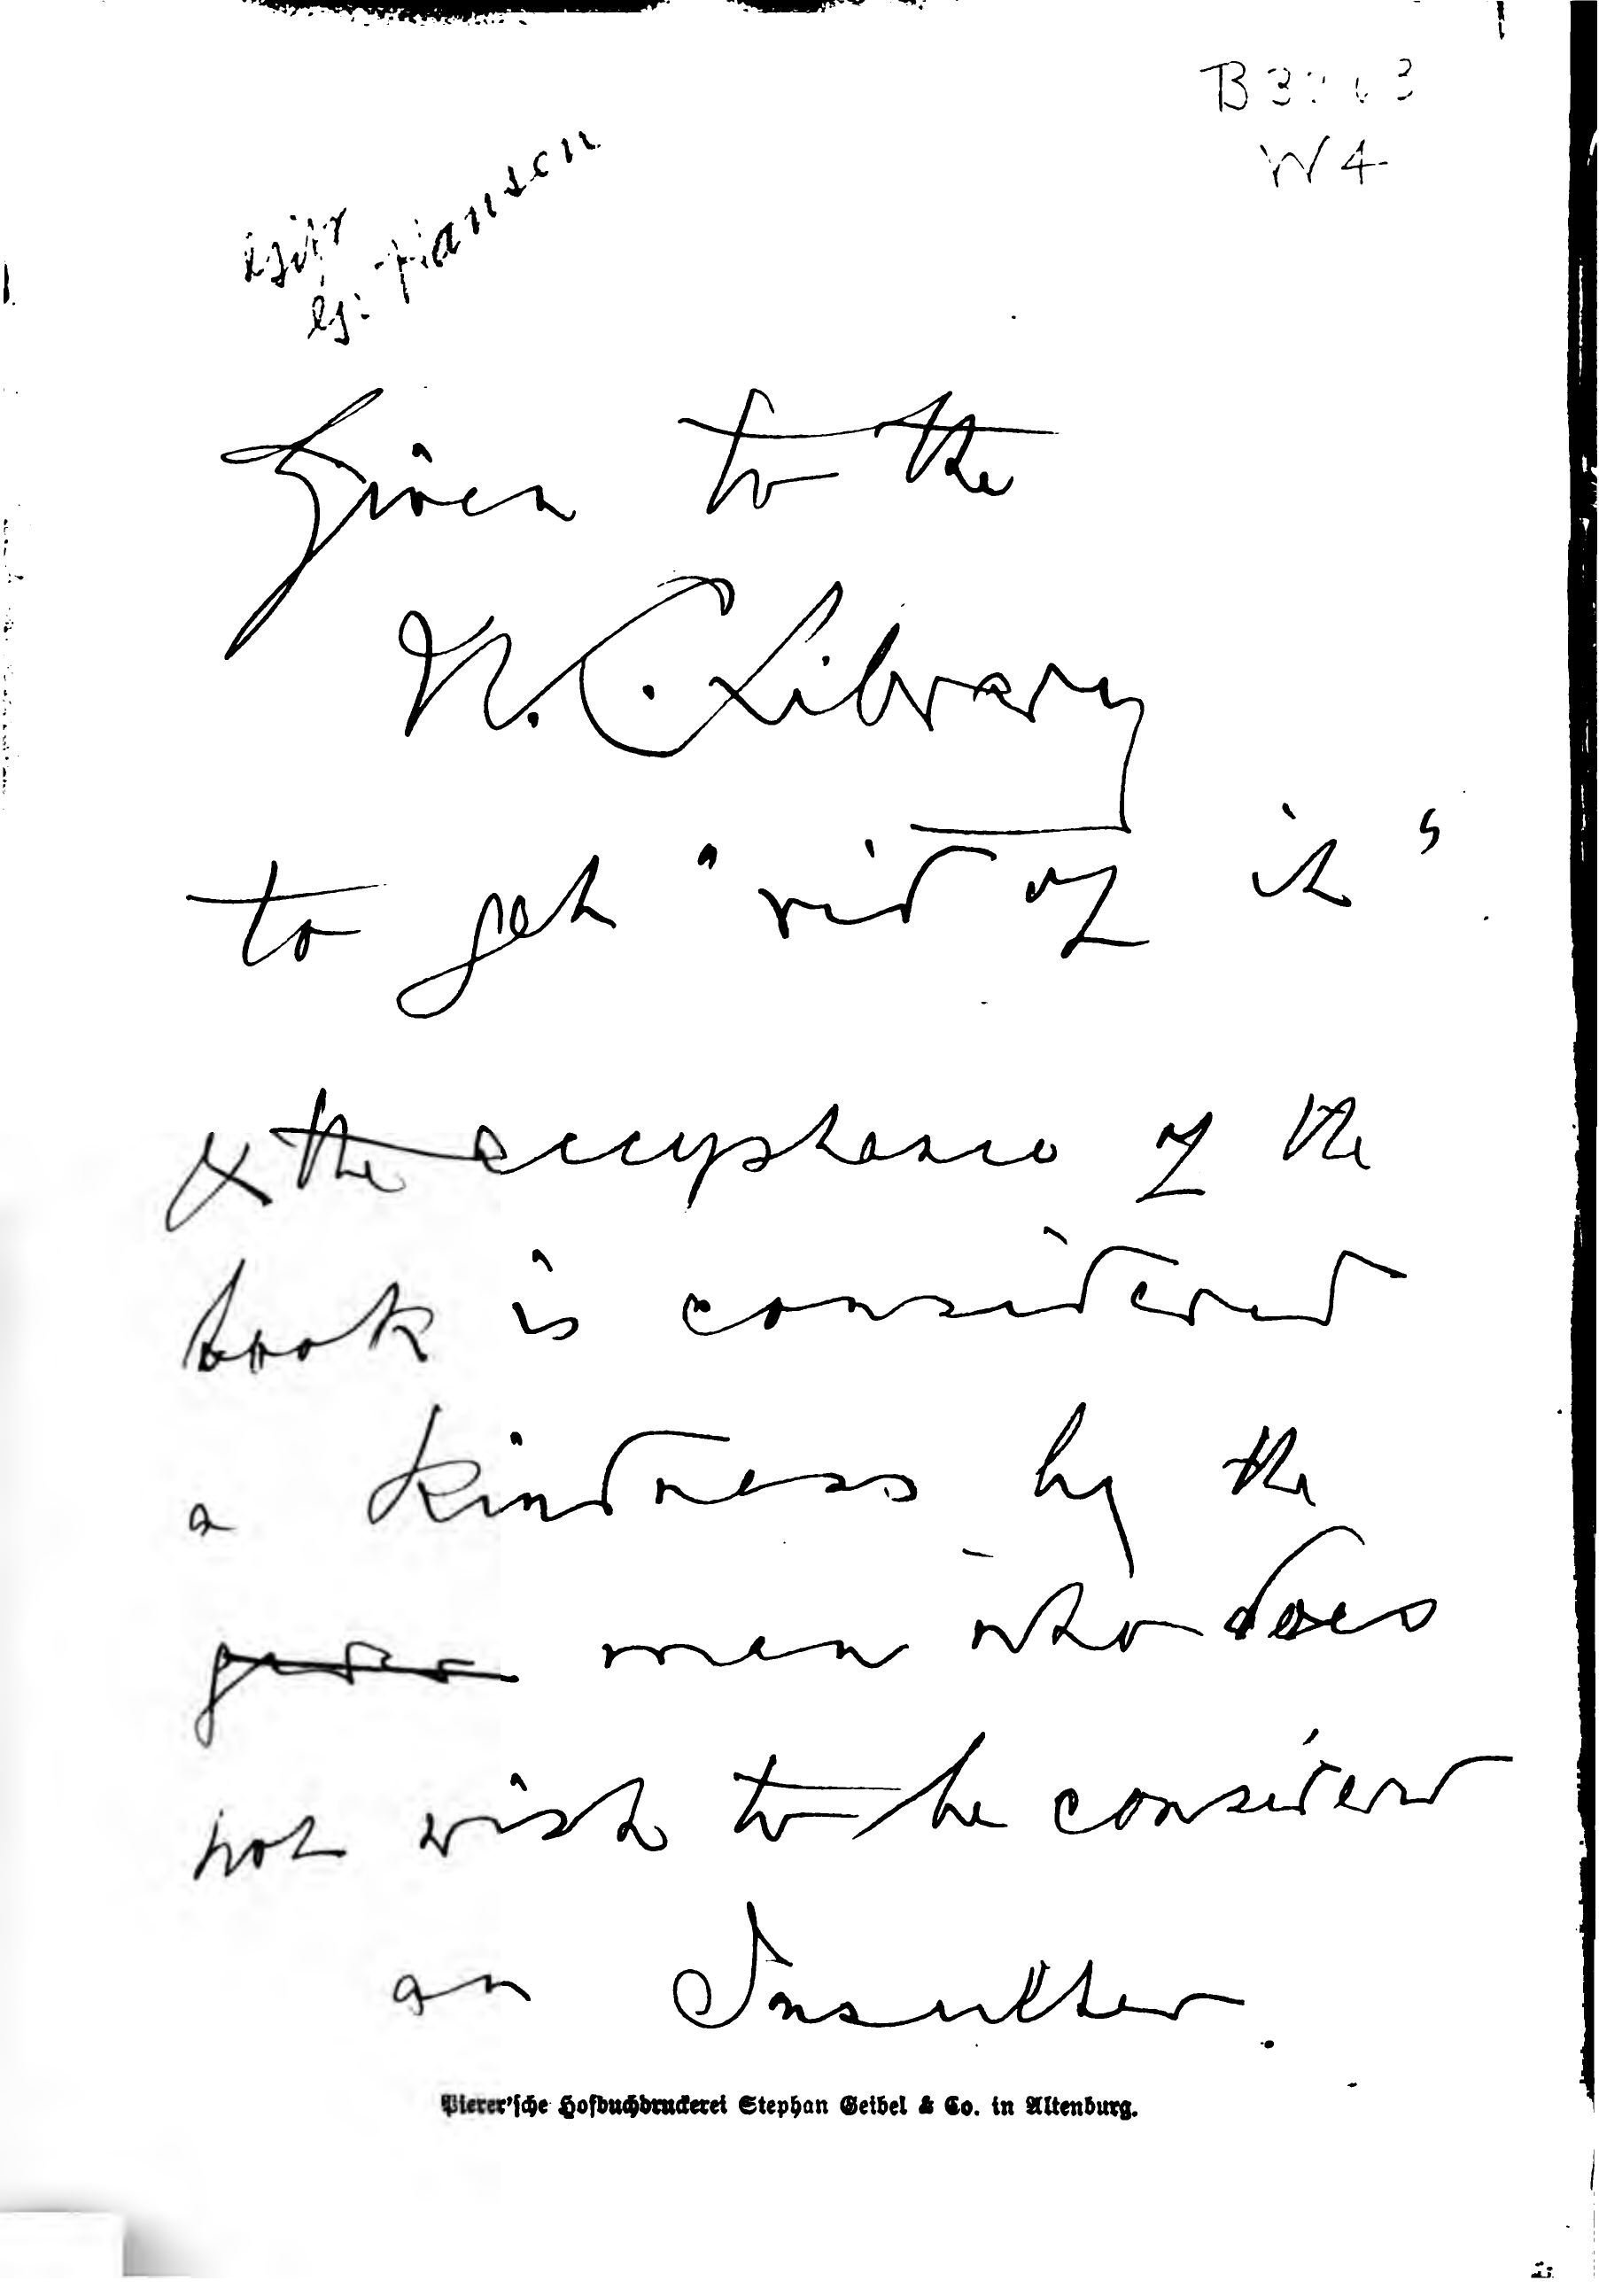 W4
Given to the
N. C. Library
to get "rid of it"
& the acceptance of the
book is considered
a kindness by the
man who does
not wish to be considerd
an Insulter.
Pierer'sche Hofbuchdruckerei Stephan Geibel & Co. in Altenburg.